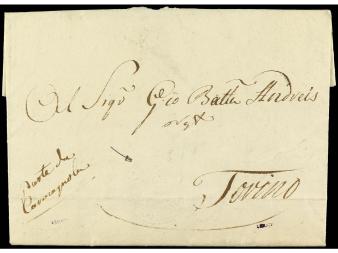 Al Sigr Gio Batta Andreis
Torino
Parte da
Carmagnola